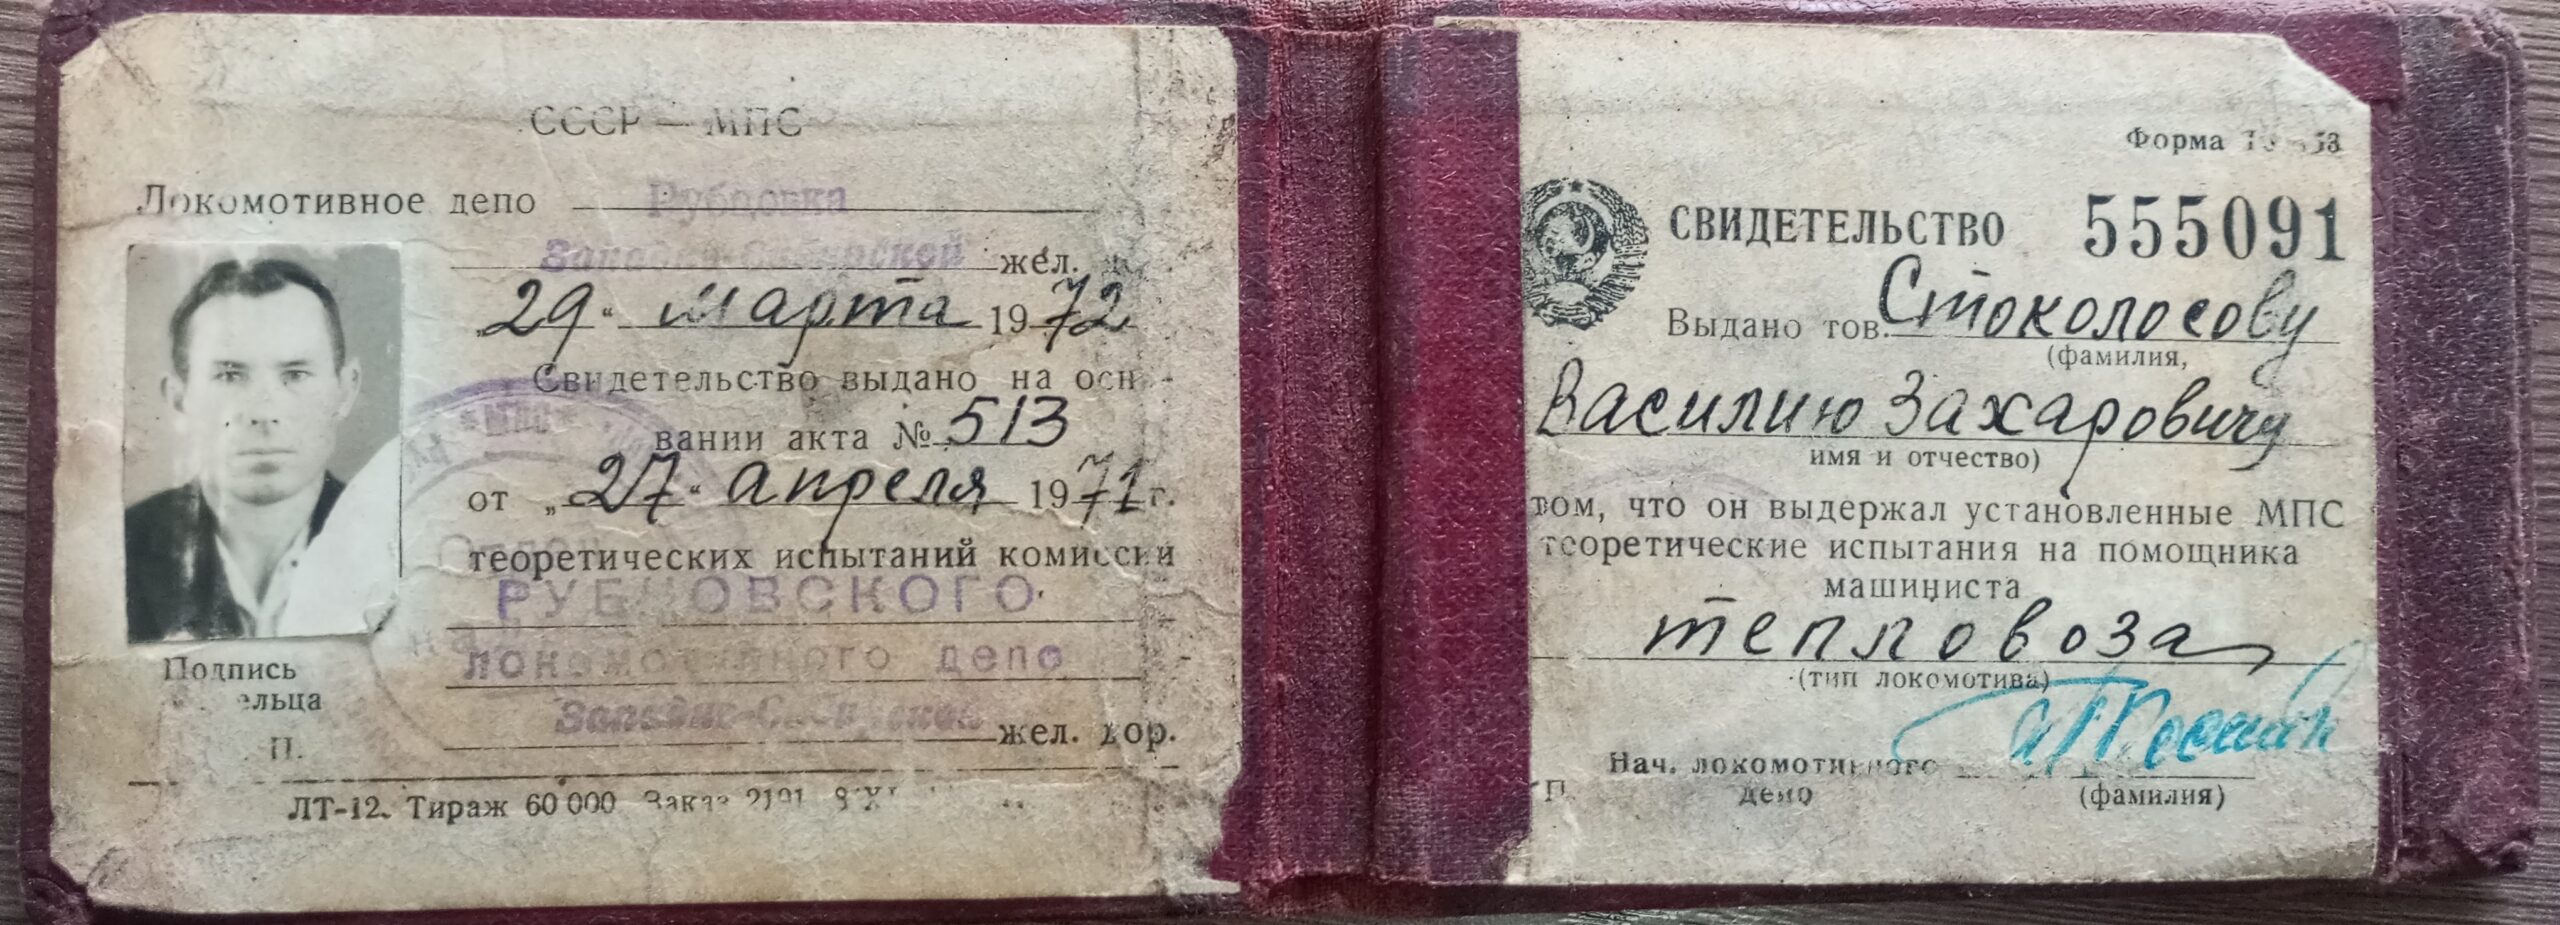 СССР — МПС
Локомотивное депо Рубцовка
Западно-Сибирской жел.
„29“ марта 1972
Свидетельство выдано на осн -
вании акта № 513
от „27“ апреля 1971 г.
теоретических испытаний комиссии
РУБЦОВСКОГО
локомотивного депо
Западно-Сибирской жел. дор.
Подпись
ельца
П.
МПС
Отдел
ЛТ-12. Тираж 60 000 Заказ 2191
Форма
СВИДЕТЕЛЬСТВО 555091
Выдано тов. Стоколосову
(фамилия,
Василию Захаровичу
имя и отчество)
том, что он выдержал установленные МПС
теоретические испытания на помощника
машиниста
тепловоза
(тип локомотива)
Нач. локомотивного
депо
(фамилия)
П.